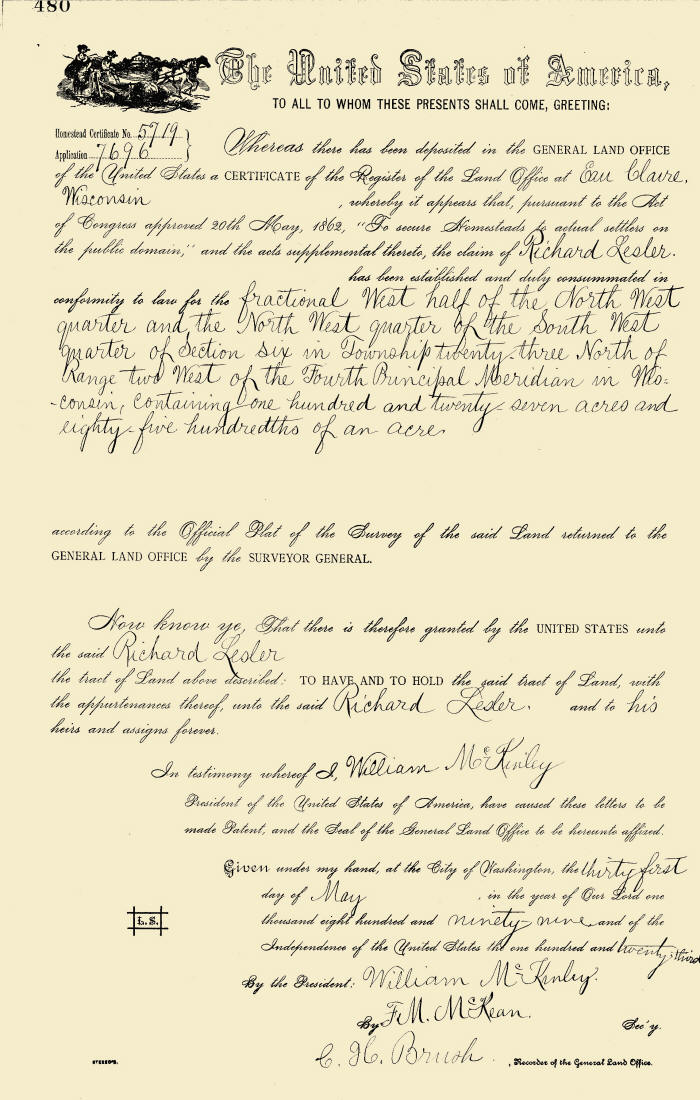 480
The United States of America,
TO ALL TO WHOM THESE PRESENTS SHALL COME, GREETING:
Homestead Certificate No. 5719
Application 7696
Whereas there has been deposited in the GENERAL LAND OFFICE
of the United States a CERTIFICATE of the Register of the Land Office at Eau Claire,
Wisconsin , whereby it appears that, pursuant to the Act
of Congress approved 20th May, 1862, "To secure Homesteads to actual settlers on
the public domain," and the acts supplemental thereto, the claim of Richard Lesler.
has been established and duly consummated in
conformity to law for the fractional West half of the North West
quarter and the North West quarter of the South West
quarter of Section six in Township twenty-three North of
Range two West of the Fourth Principal Meridian in Wis=
-consin, containing one hundred and twenty-seven acres and
eighty-five hundredths of an acre
according to the Official Plat of the Survey of the said Land returned to the
GENERAL LAND OFFICE by the SURVEYOR GENERAL.
Now know ye, That there is therefore granted by the UNITED STATES unto
the said Richard Lesler
the tract of Land above described: TO HAVE AND TO HOLD the said tract of Land, with
the appurtenances thereof, unto the said Richard Lesler. and to his
heirs and assigns forever.
In testimony whereof I, William McKinley
President of the United States of America, have caused these letters to be
made Patent, and the Seal of the General Land Office to be hereunto affixed.
Given under my hand, at the City of Washington, the thirty first
day of May , in the year of Our Lord one
thousand eight hundred and ninety nine and of the
Independence of the United States the one hundred and twenty-third
L.S.
By the President: William McKinley.
By F.M. McKean. Sec'y.
C. H. Brush. , Recorder of the General Land Office.